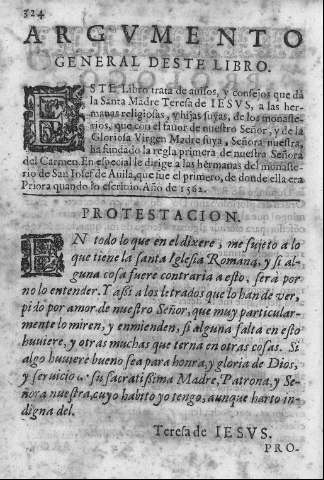 324
ARGVMENTO
GENERAL DESTE LIBRO.
ESTE Libro trata de auisos, y consejos que dà
la Santa Madre Teresa de IESVS, a las her-
manas religiosas, y hijas suyas, de los monaste-
rios, que con el fauor de nuestro Señor, y de la
Gloriosa Virgen Madre suya, Señora nuestra,
ha fundado la regla primera de nuestra Señora
del Carmen. En especial le dirige a las hermanas del monaste-
rio de San Iosef de Auila, que fue el primero, de donde ella era
Priora quando lo escriuio. Año de 1562.
PROTESTACION.
EN todo lo que en el dixere, me sujeto a lo
que tiene la santa Iglesia Romana, y si al-
guna cosa fuere contraria a esto, serà por
no lo entender. Y assi a los letrados que lo han de ver,
pido por amor de nuestro Señor, que muy particular-
mente lo miren, y enmienden, si alguna falta en esto
huuiere, y otras muchas que terna en otras cosas. Si
algo huuiere bueno sea para honra, y gloria de Dios,
y seruicio su sacratissima Madre, Patrona, y Se-
ñora nuestra, cuyo habito yo tengo, aunque harto in-
digna del.
Teresa de IESVS.
PRO-